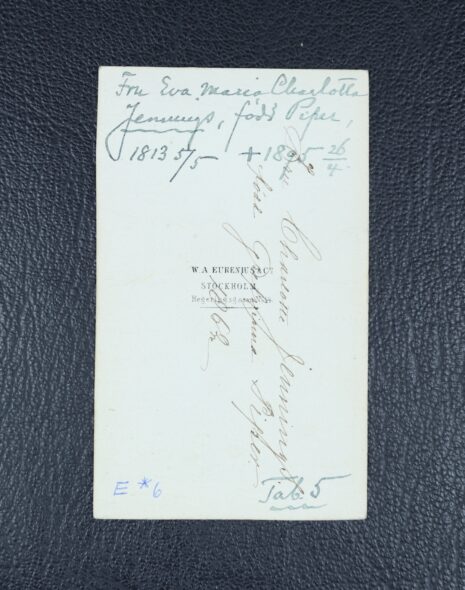 Fru Eva Maria Charlotta
Jennings, född Piper,
1813 5/5 + 1895 26/4
Fru Charlotte Jennings
född Grefvinna Piper
1862
W. A. EURENIUS & C?
STOCKHOLM
E *6
Tab 5